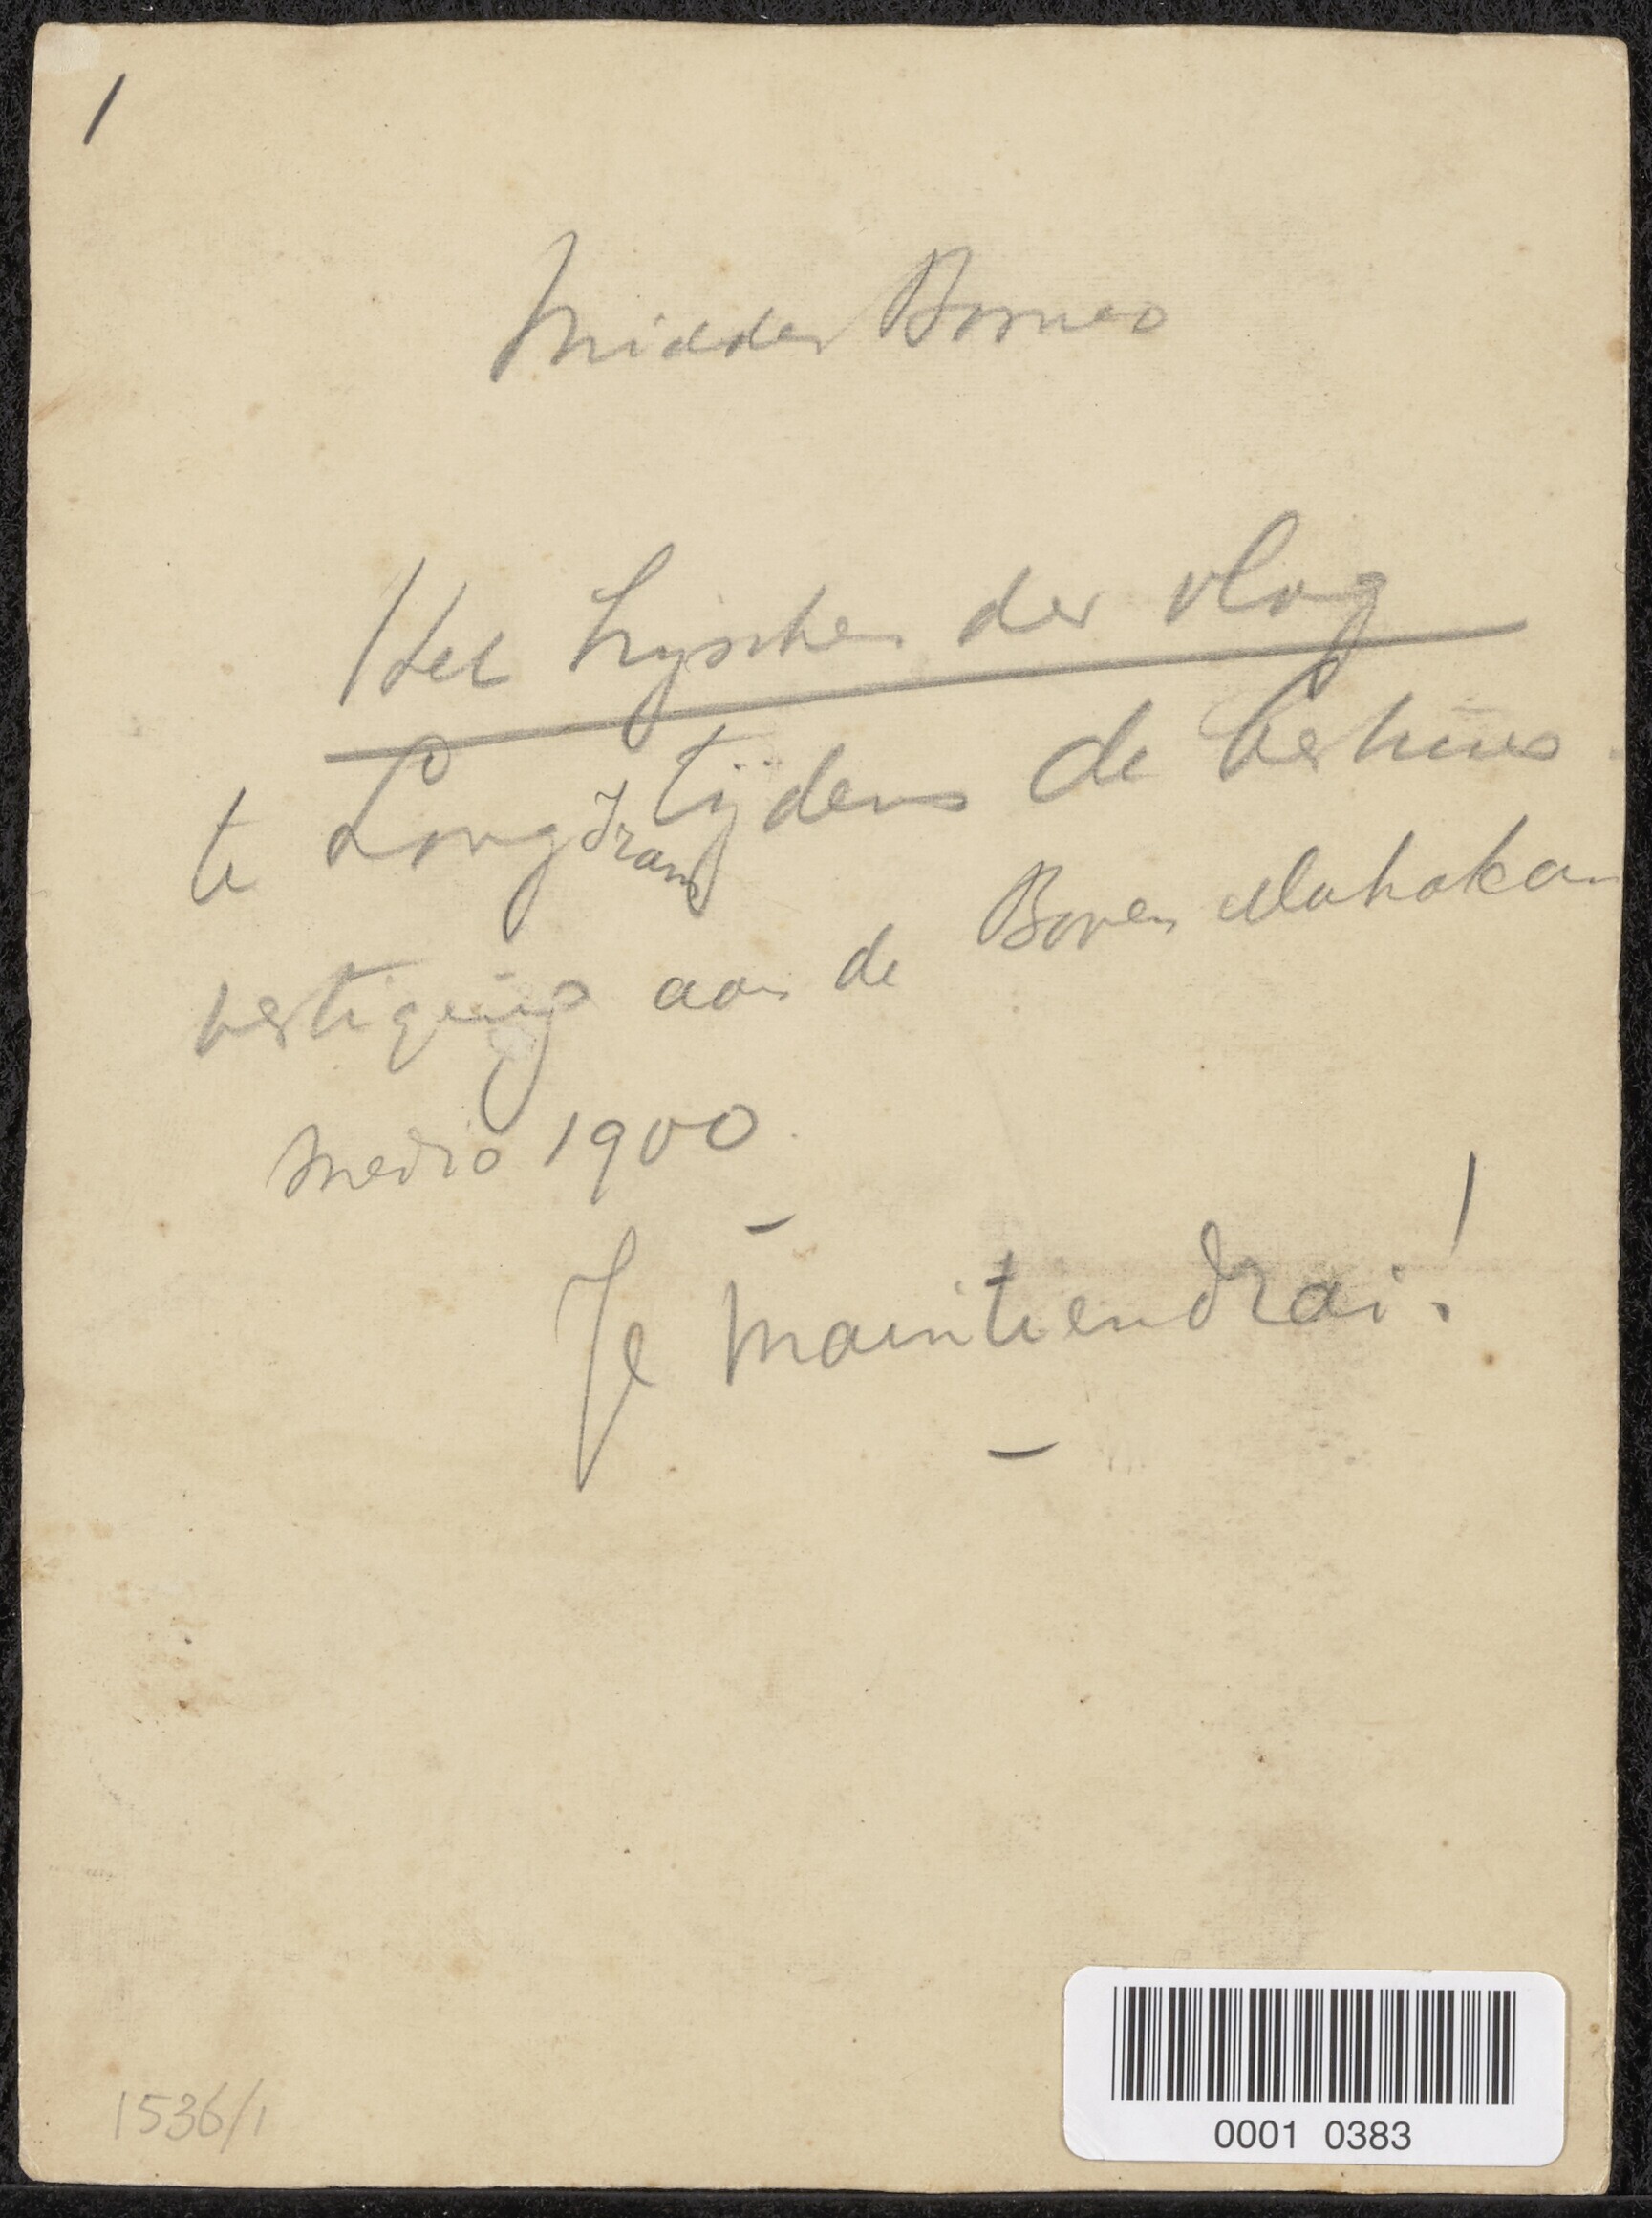 1
Midden Borneo
Het hijschen der vlag
te Long Iram tijdens de bestuurs
vestiging aan de Boven Mahakam
medio 1900
Je maintiendrai!
1536/1
0001 0383